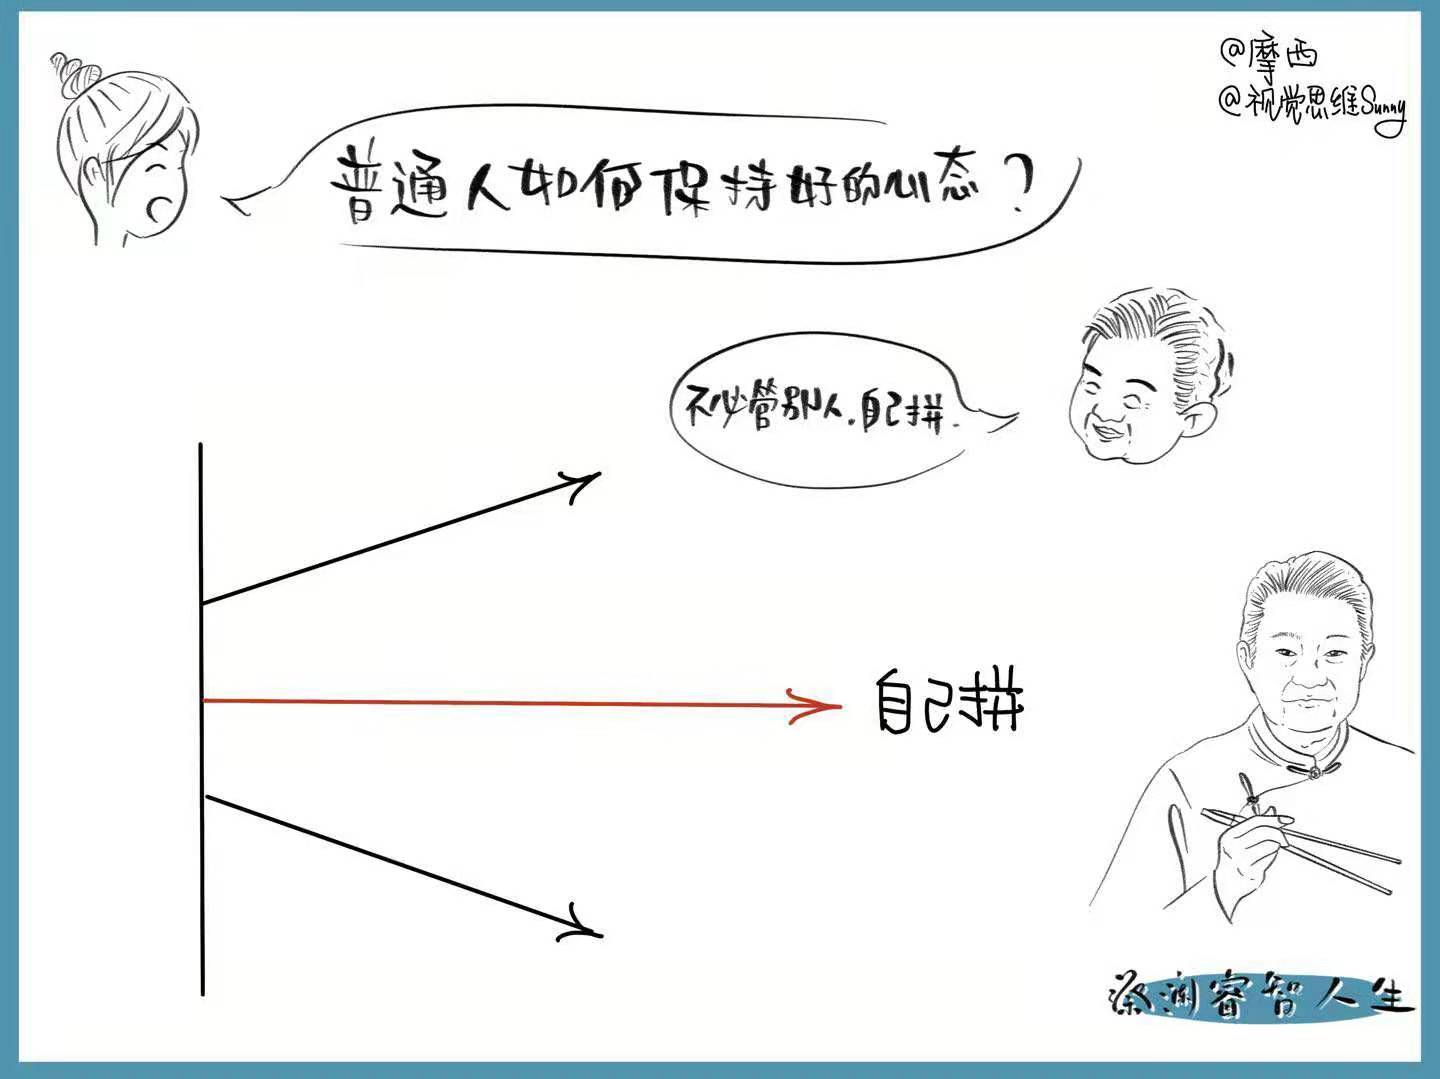 @摩西
@视觉思维Sunny
普通人如何保持好的心态?
不必管别人.自己拼.
自己拼
蔡澜睿智人生